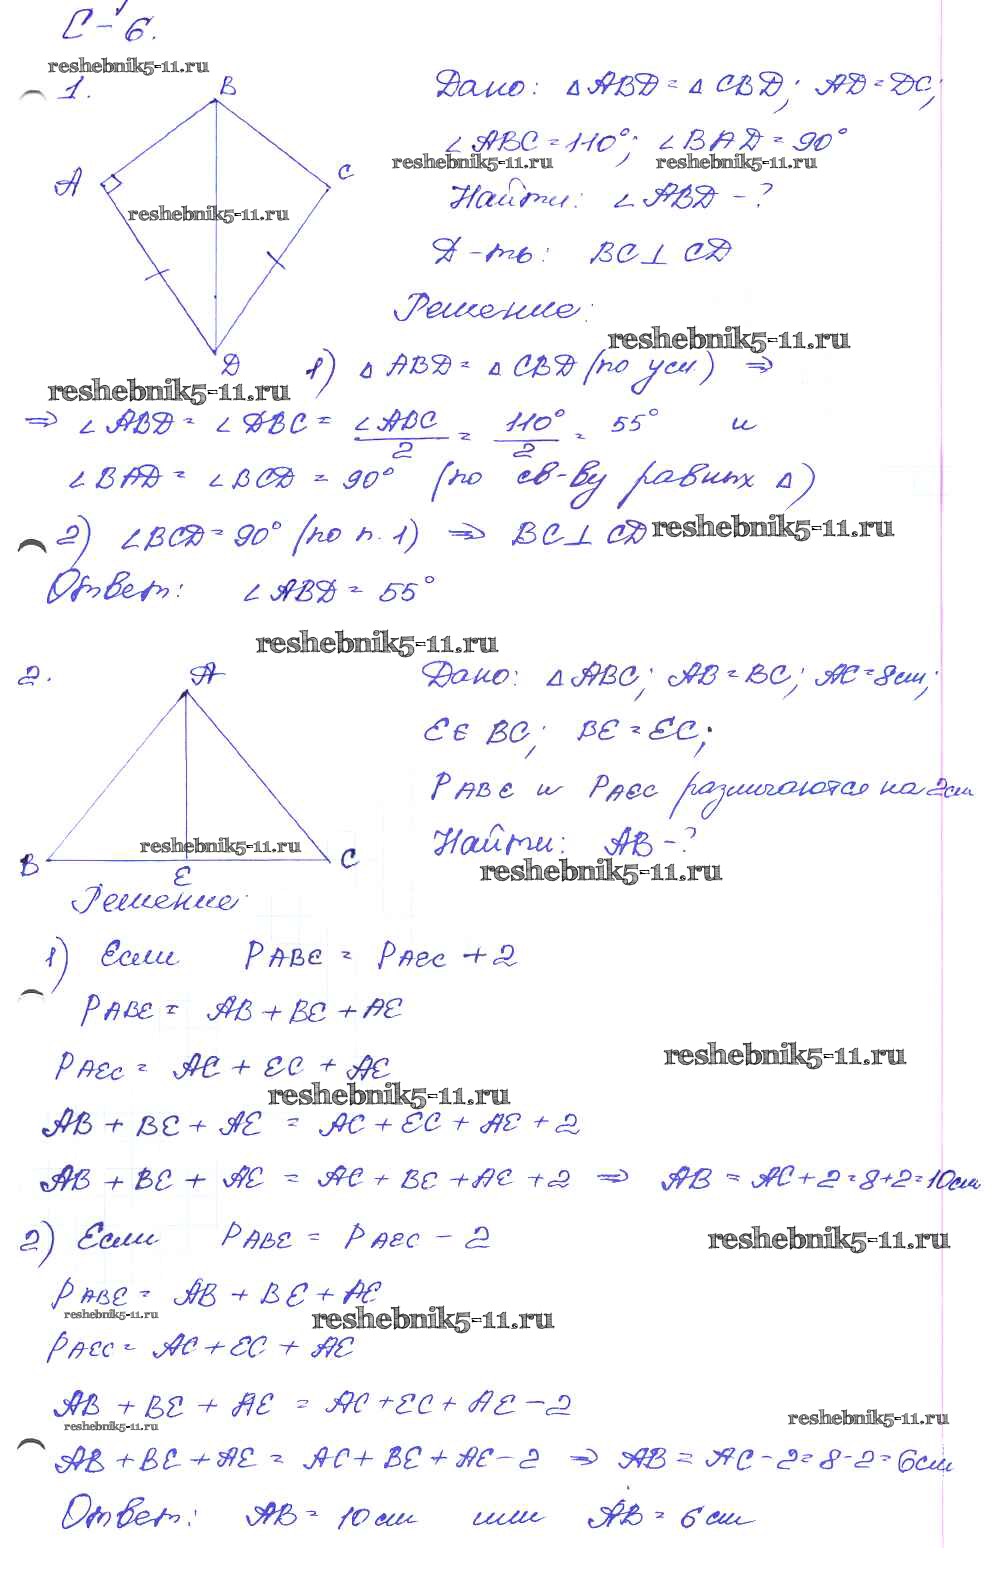 С-6.
reshebnik5-11.ru
1.
B
A
C
D
reshebnik5-11.ru
Дано: △ABD = △CBD; AD = DC;
∠ABC = 110°; ∠BAD = 90°
reshebnik5-11.ru reshebnik5-11.ru
Найти: ∠ABD - ?
Д-ть: BC ⊥ CD
Решение:
reshebnik5-11.ru
1) △ABD = △CBD (по усл) ⇒
reshebnik5-11.ru
⇒ ∠ABD = ∠DBC = ∠ABC/2 = 110°/2 = 55° и
∠BAD = ∠BCD = 90° (по св-ву равных △)
2) ∠BCD = 90° (по п. 1) ⇒ BC ⊥ CD reshebnik5-11.ru
Ответ: ∠ABD = 55°
reshebnik5-11.ru
2.
A
B
E
C
reshebnik5-11.ru
Дано: △ABC; AB = BC; AC = 8см;
E ∈ BC; BE = EC;
P ABE и P AEC различаются на 2см
Найти: AB - ?
reshebnik5-11.ru
Решение:
1) Если P ABE = P AEC + 2
P ABE = AB + BE + AE
reshebnik5-11.ru
P AEC = AC + EC + AE
reshebnik5-11.ru
AB + BE + AE = AC + EC + AE + 2
AB + BE + AE = AC + BE + AE + 2 ⇒ AB = AC + 2 = 8 + 2 = 10см
2) Если P ABE = P AEC - 2
reshebnik5-11.ru
P ABE = AB + BE + AE
reshebnik5-11.ru reshebnik5-11.ru
P AEC = AC + EC + AE
AB + BE + AE = AC + EC + AE - 2
reshebnik5-11.ru reshebnik5-11.ru
AB + BE + AE = AC + BE + AE - 2 ⇒ AB = AC - 2 = 8 - 2 = 6см
Ответ: AB = 10см или AB = 6см